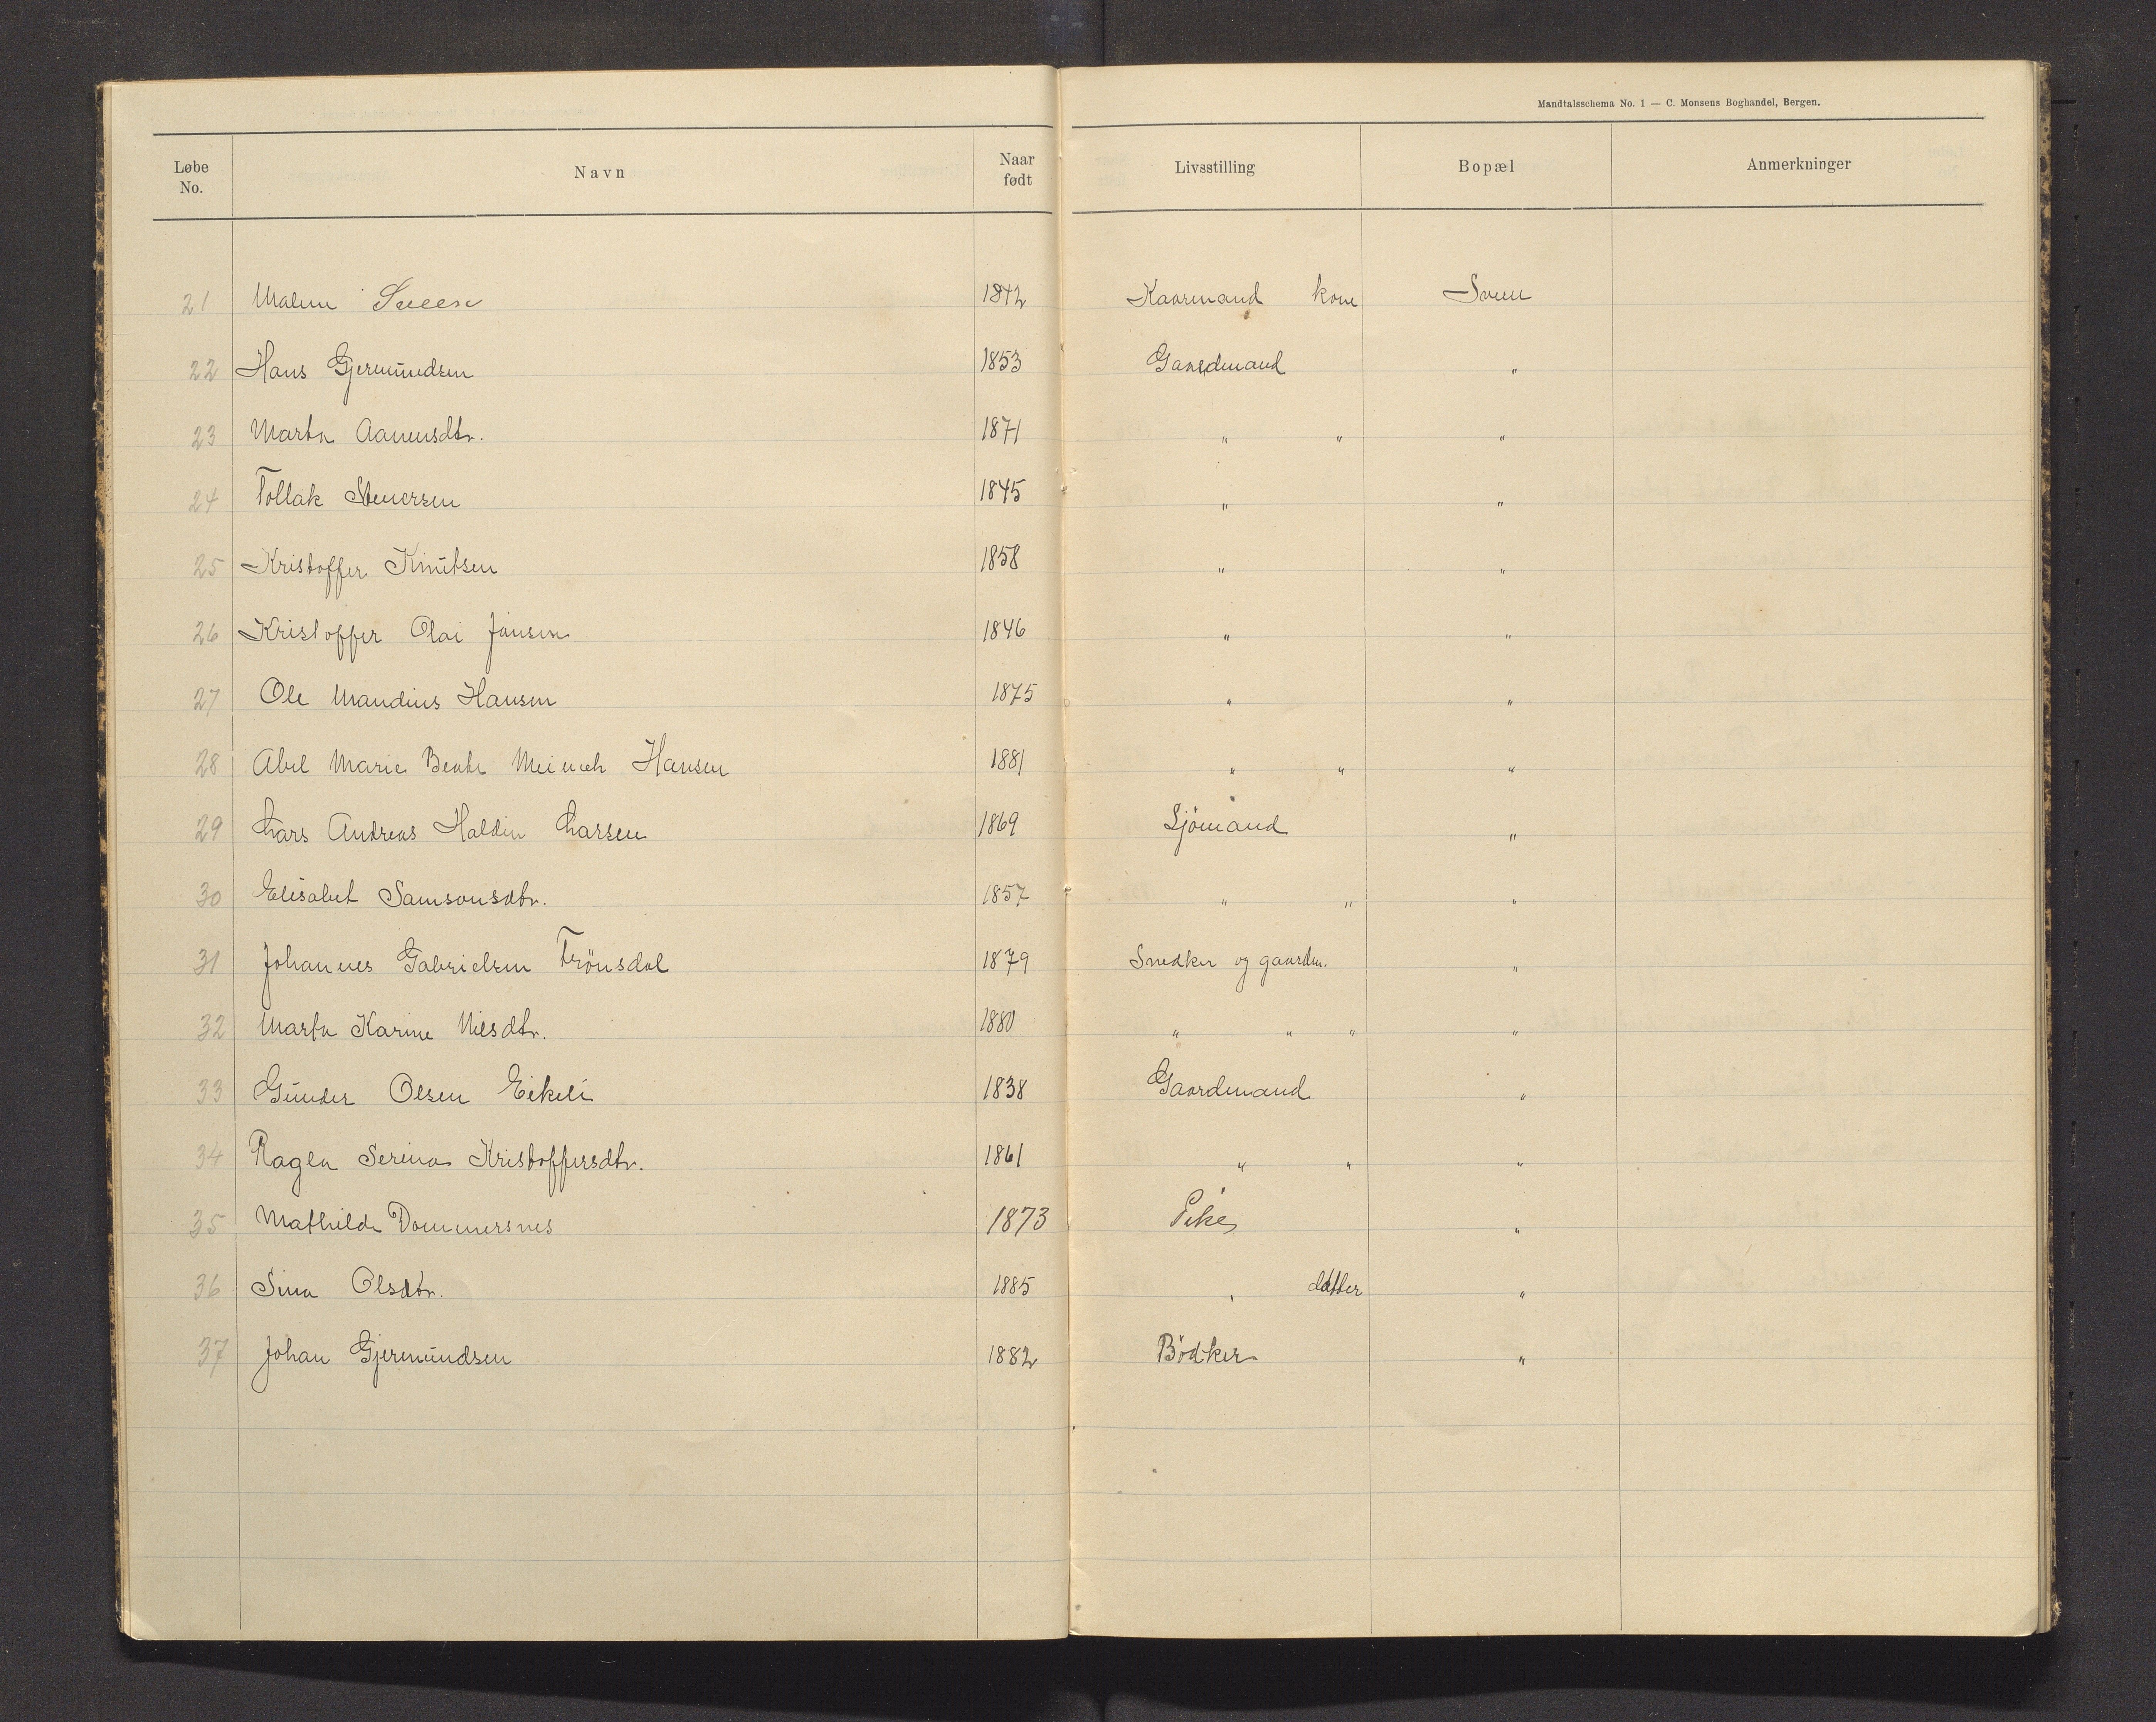 Mandtalsschema No. 1 — C. Monsens Boghandel, Bergen.
Løbe No. Navn Naar født Livsstilling Bopæl Anmerkninger
21 Malene Sveen 1842 Kaarmand kone Sveen
22 Hans Gjermundsen 1853 Gaardmand "
23 Marta Aanensdtr. 1871 " " "
24 Tollak Stenersen 1845 " "
25 Kristoffer Knutsen 1858 " "
26 Kristoffer Olai Jansen 1846 " "
27 Ole Mandius Hansen 1875 " "
28 Abel Marie Bente Hansen 1881 " " "
29 Lars Andreas Haldin Larsen 1869 Sjömand "
30 Elisabet Samsonsdtr. 1857 " " "
31 Johannes Gabrielsen Trönsdal 1879 Snedker og gaardm. "
32 Marta Karine Nilsdtr. 1880 " " " "
33 Gunder Olsen Eikeli 1838 Gaardmand "
34 Ragla Serina Kristoffersdtr. 1861 " " "
35 Mathilde Dommersnes 1873 Pike "
36 Sina Olsdtr. 1885 " datter "
37 Johan Gjermundsen 1882 Bödker "